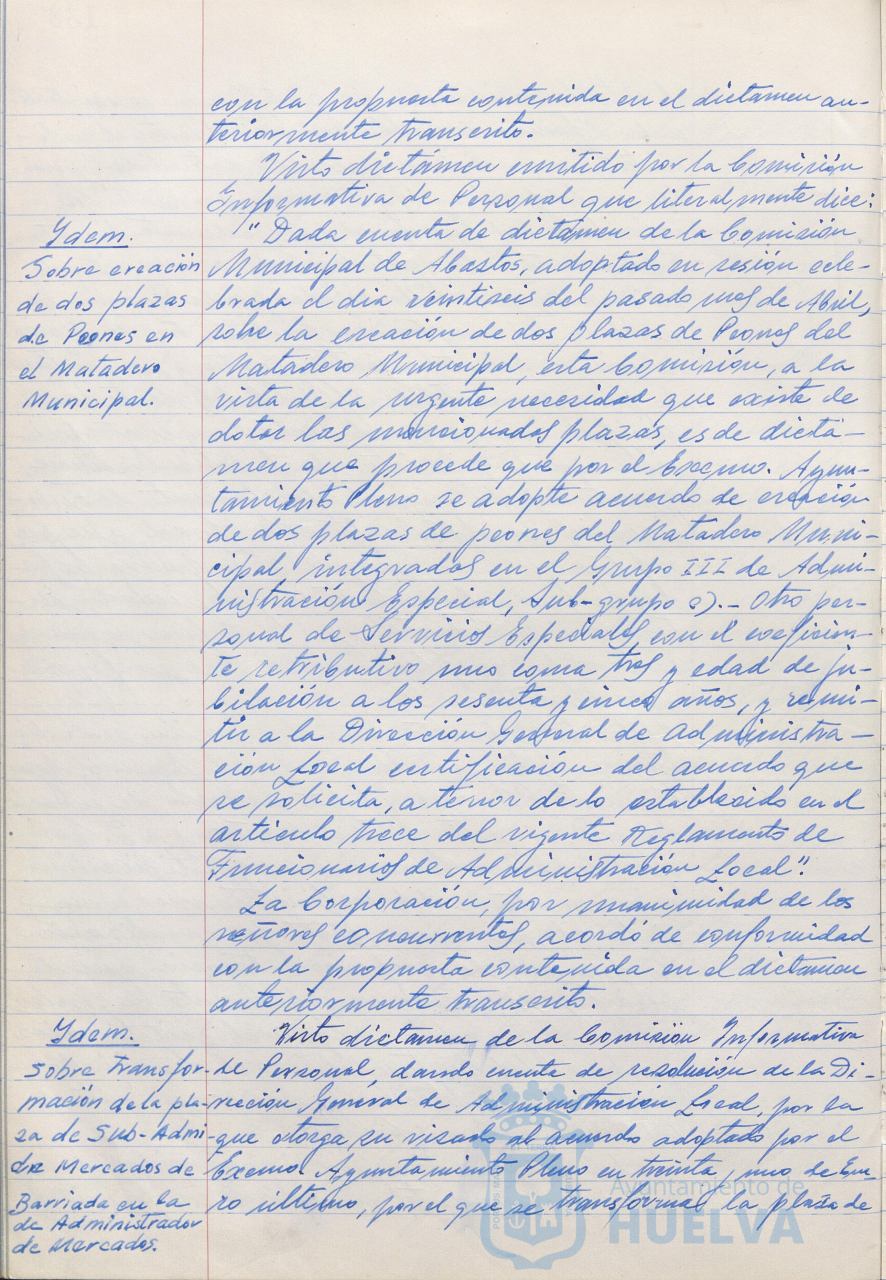 con la propuesta contenida en el dictamen an-
teriormente transcrito.
Visto dictámen emitido por la Comisión
Informativa de Personal que literalmente dice:
Ydem.
Sobre creación
de dos plazas
de Peones en
el Matadero
Municipal.
"Dada cuenta de dictamen de la Comisión
Municipal de Abastos, adoptado en sesión cele-
brada el dia veintiseis del pasado mes de Abril,
sobre la creación de dos plazas de Peones del
Matadero Municipal, esta Comisión, a la
vista de la urgente necesidad que existe de
dotar las mencionadas plazas, es de dicta-
men que procede que por el Excmo. Ayun-
tamiento Pleno se adopte acuerdo de creación
de dos plazas de peones del Matadero Muni-
cipal integradas en el Grupo III de Admi-
nistración Especial, Sub-grupo c).- Otro per-
sonal de Servicios Especiales con el coeficien-
te retributivo uno coma tres y edad de ju-
bilación a los sesenta y cinco años, y remi-
tir a la Dirección General de Administra-
ción Local certificación del acuerdo que
se solicita, a tenor de lo establecido en el
artículo trece del vigente Reglamento de
Funcionarios de Administración Local".
La Corporación, por unanimidad de los
señores concurrentes, acordó de conformidad
con la propuesta contenida en el dictamen
anteriormente transcrito.
Ydem.
Sobre transfor-
mación de la pla-
za de Sub-Admi
de Mercados de
Barriada en la
de Administrador
de Mercados.
Visto dictamen de la Comisión Informativa
de Personal, dando cuenta de resolución de la Di-
rección General de Administración Local, por la
que otorga su visado al acuerdo adoptado por el
Excmo. Ayuntamiento Pleno en treinta y uno de Ene-
ro último, por el que se transforma la plaza de
Ayuntamiento de
HUELVA